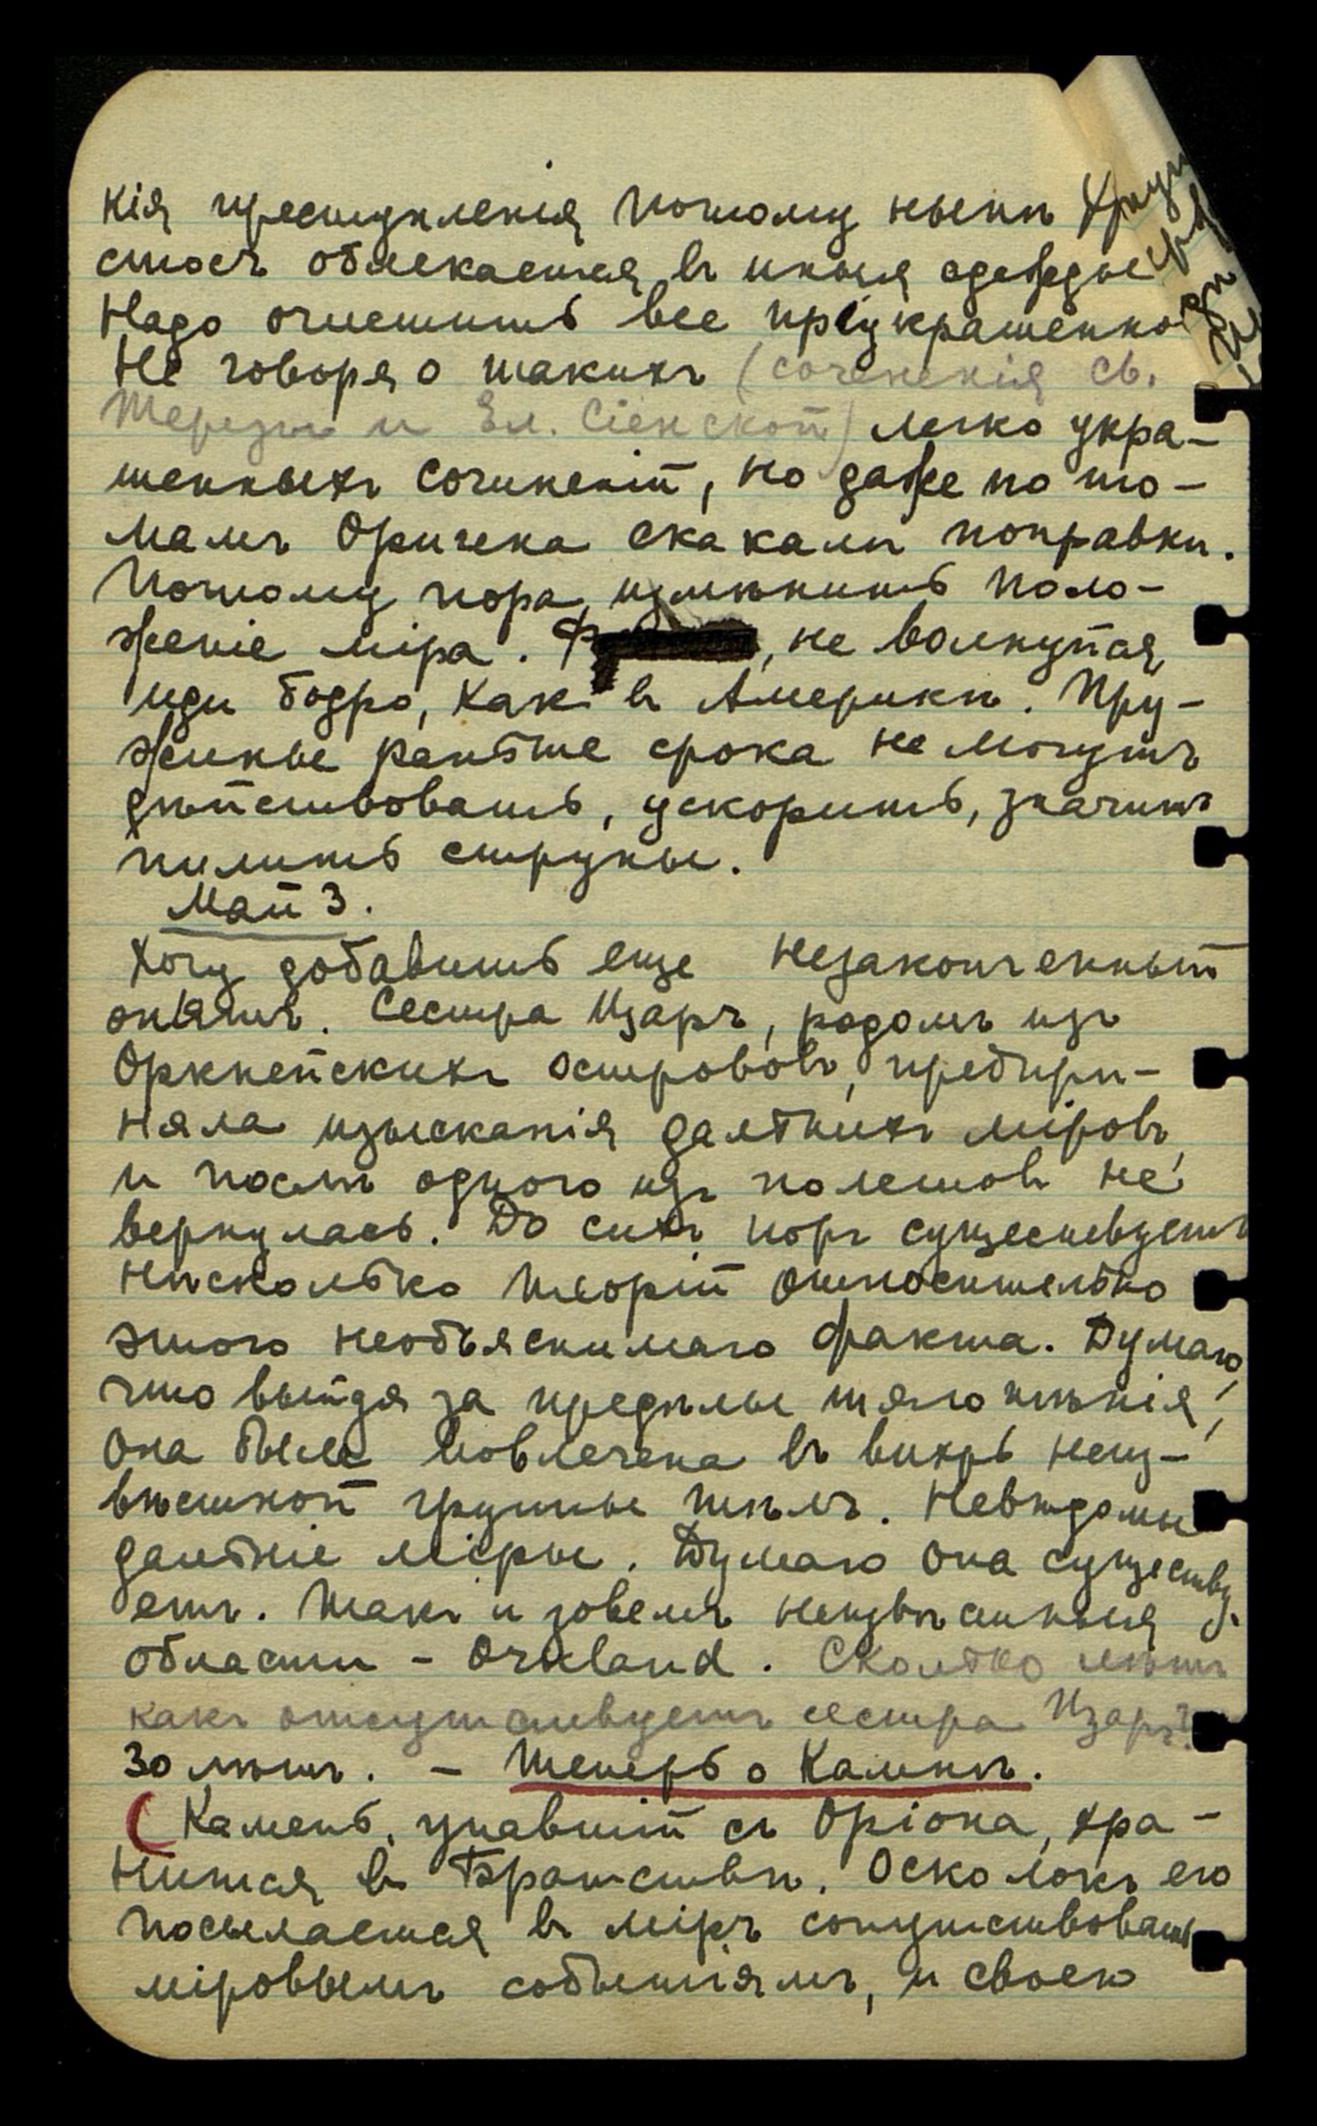 кія преступленія потому нынѣ
стосъ облекается въ иныя одежды
Надо очистить все пріукрашенно
Не говоря о такихъ (сочененія св.
Терезы и Ек. Сіенской) легко укра-
шенныхъ сочиненій, но даже по то-
мамъ Оригена скакали поправки.
Потому пора измѣнить поло-
женіе міра. , не волнуйся
иди бодро, какъ в Америкѣ. Пру-
жины раньше срока не могутъ
дѣйствовать, ускорить, значитъ
пилить струны.
Май 3.
Хочу добавить еще незаконченный
опытъ. Сестра Изаръ, родомъ изъ
Оркнейскихъ острововъ, предпри-
няла изысканія дальнихъ міровъ
и послѣ одного изъ полетовъ не
вернулась. До сихъ поръ существуетъ
нѣсколько теорій относительно
этого необъяснимаго факта. Думаю,
что выйдя за предѣлы тяготѣнія,
она была вовлечена въ вихрь неиз-
вѣстной группы тѣлъ. Невѣдомы
дальніе міры. Думаю она существу-
етъ. Такъ и зовемъ неизвѣстныя
области - Orkland. Сколько лѣтъ
какъ отсутствуетъ сестра Изаръ?
30 лѣтъ. - Теперь о Камнѣ.
(Камень, упавшій съ Оріона, хра-
нится въ Братствѣ. Осколокъ его
посылается въ міръ сопутствовать
міровымъ событіямъ, и своею